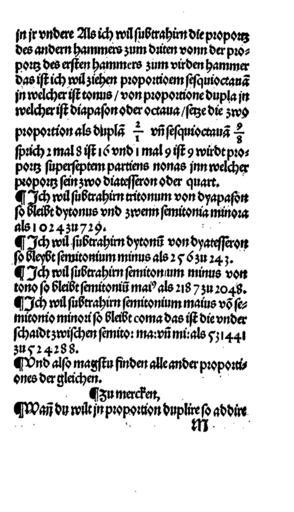 jn jr vndere Als ich wil subtrahirn die proportz
des andern hammers zum driten vonn der pro-
portz des ersten hammers zum virden hammer
das ist ich wil ziehen proportioem sesquioctauā
jn welcher ist tonus / von proportione dupla jn
welcher ist diapason oder octaua / setze die zwo
proportion als duplā 2/1 vn̄ sesquioctauā 9/8
sprich 2 mal 8 ist 16 vnd 1 mal 9 ist 9 wirdt pro-
portz superseptem partiens nonas jnn welcher
proportz sein zwo diatesseron oder quart.
¶ Ich wil subtrahirn tritonum von dyapason
so bleibt dytonus vnd zwenn semitonia minora
als 1024 zu 729.
¶ Ich wil subtrahirn dytonū von dyatesseron
so bleybt semitonium minus als 256 zu 243.
¶ Ich wil subtrahirn semitonium minus von
tono so bleibt semitoniū maiꝰ als 2187 zu 2048.
¶ Ich wil subtrahirn semitonium maius vō se-
mitonio minori so bleibt coma das ist die vnder
schaidt zwischen semito: ma: vn̄ mi: als 531441
zu 524288.
¶ Vnd also magstu finden alle ander proporti-
ones der gleichen.
¶ Zu mercken,
¶ Wan̄ du wilt jn proportion duplire so addire
M